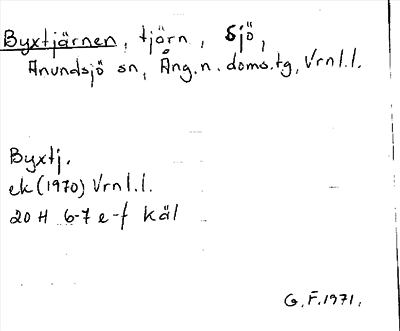 Byxtjärnen, tjärn, Sjö,
Anundsjö sn, Ång. n. doms.tg, Vrnl.l.
Byxtj.
ek (1970) Vrnl.l.
20 H 6-7 e-f käl
G. F. 1971.